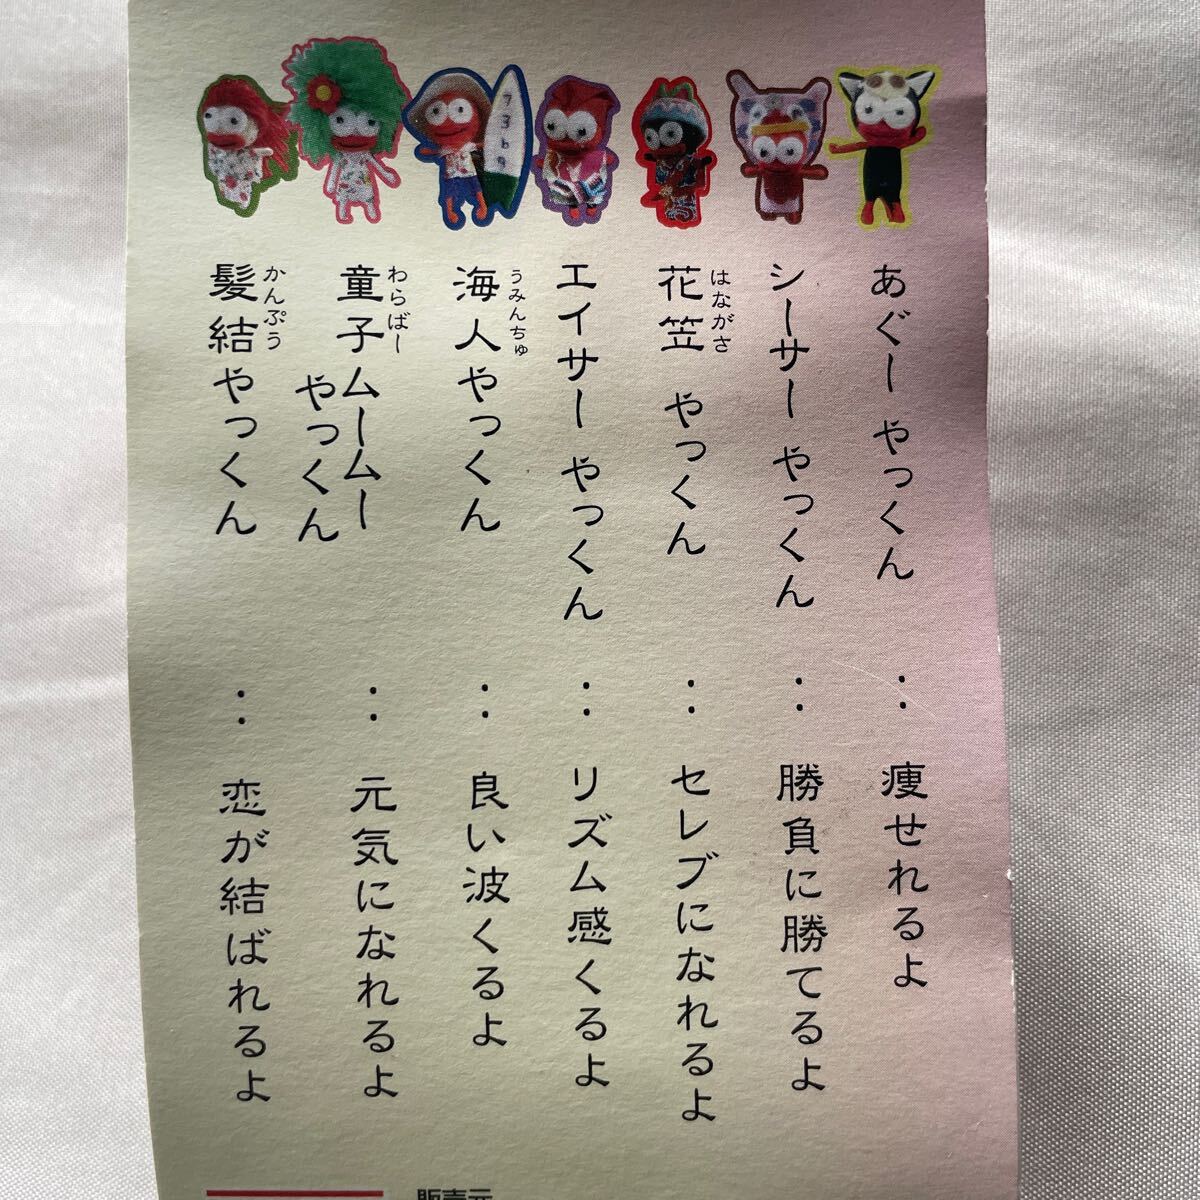 あぐー やっくん : 痩せれるよ
シーサー やっくん : 勝負に勝てるよ
はながさ
花笠 やっくん : セレブになれるよ
エイサー やっくん : リズム感くるよ
うみんちゅ
海人やっくん : 良い波くるよ
わらばー
童子ムームー
やっくん : 元気になれるよ
かんぷう
髪結やっくん : 恋が結ばれるよ
販売元